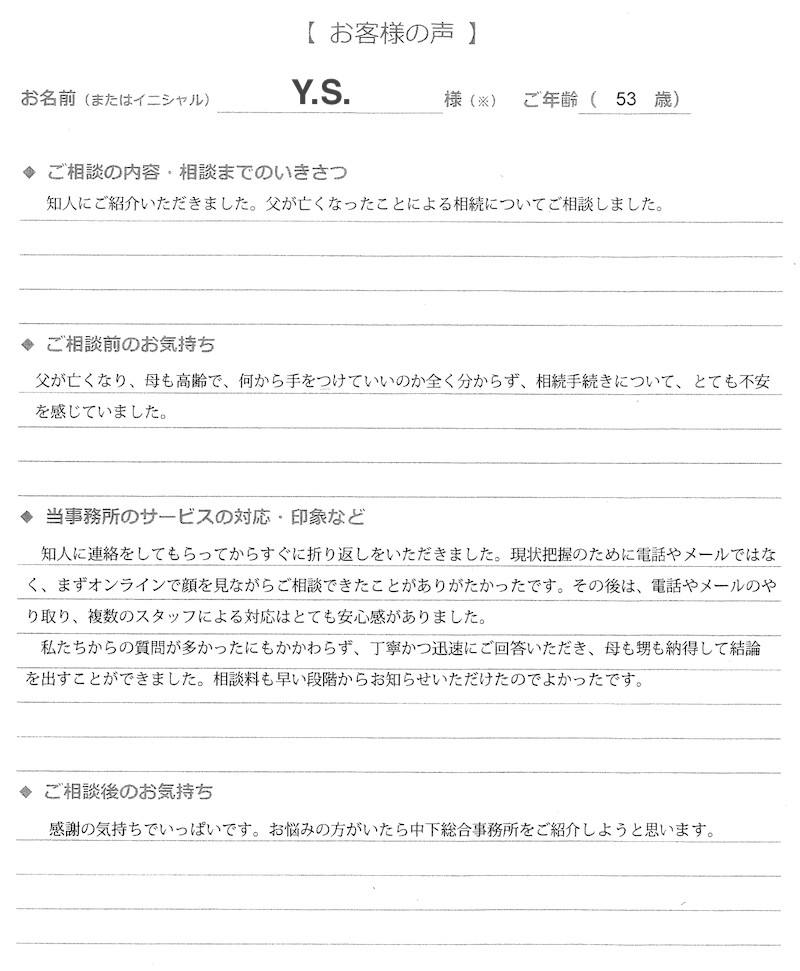 【 お客様の声 】
お名前（またはイニシャル） Y.S. 様（※） ご年齢（ 53 歳）
◆ ご相談の内容・相談までのいきさつ
知人にご紹介いただきました。父が亡くなったことによる相続についてご相談しました。
◆ ご相談前のお気持ち
父が亡くなり、母も高齢で、何から手をつけていいのか全く分からず、相続手続きについて、とても不安
を感じていました。
◆ 当事務所のサービスの対応・印象など
知人に連絡をしてもらってからすぐに折り返しをいただきました。現状把握のために電話やメールではな
く、まずオンラインで顔を見ながらご相談できたことがありがたかったです。その後は、電話やメールのや
り取り、複数のスタッフによる対応はとても安心感がありました。
私たちからの質問が多かったにもかかわらず、丁寧かつ迅速にご回答いただき、母も甥も納得して結論
を出すことができました。相談料も早い段階からお知らせいただけたのでよかったです。
◆ ご相談後のお気持ち
感謝の気持ちでいっぱいです。お悩みの方がいたら中下総合事務所をご紹介しようと思います。